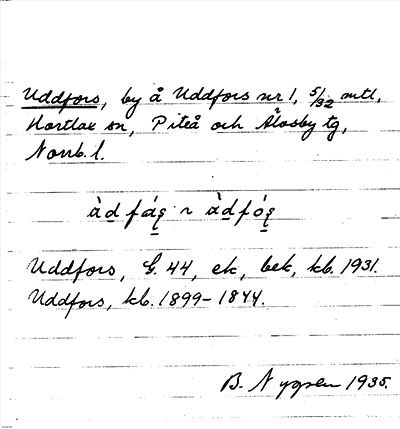 Uddfors, by å Uddfors nr 1, 5/32 mtl,
Hortlax sn, Piteå och Älvsby tg,
Norrb. l.
àd̲ fáş ~ àd̲fóş
Uddfors, G. 44, ek, bek, kb. 1931.
Uddfors, kb. 1899-1844.
B. Nygren 1935.